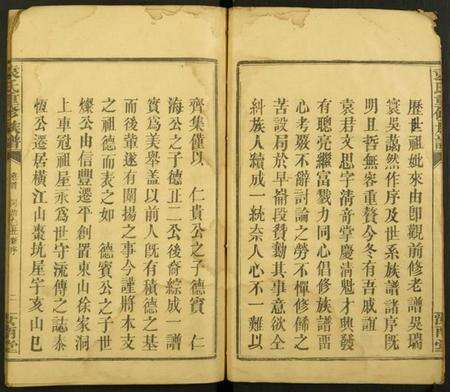 歷世祖妣來由即觀前修老譜吳瑞
寰吳譪然作序及世系族譜諸序既
明且哲無容重贅今冬有吾戚誼
袁君文思字清奇掌慶清魁才與發
有聰亮繼富戮力同心倡修族譜而
心考覈不辭討論之勞不憚修飾之
苦設局於早崙段贊勷其事意欲全
糾族人續成一統奈人心不一難以
齊集僅以　仁貴公之子德寶　仁
海公之子德正二公後裔綜成　譜
實爲美舉蓋以前人既有積德之基
而後輩遂有闡揚之事今謹將本支
之祖德而表之如　德寶公之子世
燦公由信豐遷平創置東山徐家洞
上車冠祖屋永爲世守流傳之誌泰
恆公遷居橫江山棗坑屋宇亥山巳
袁氏重修族譜